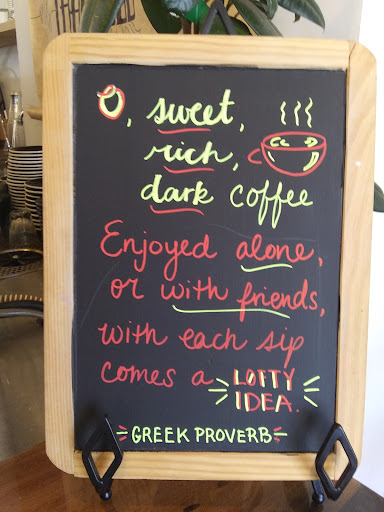 O, sweet,
rich,
dark coffee
Enjoyed alone,
or with friends,
with each sip
comes a LOFTY
IDEA.
GREEK PROVERB